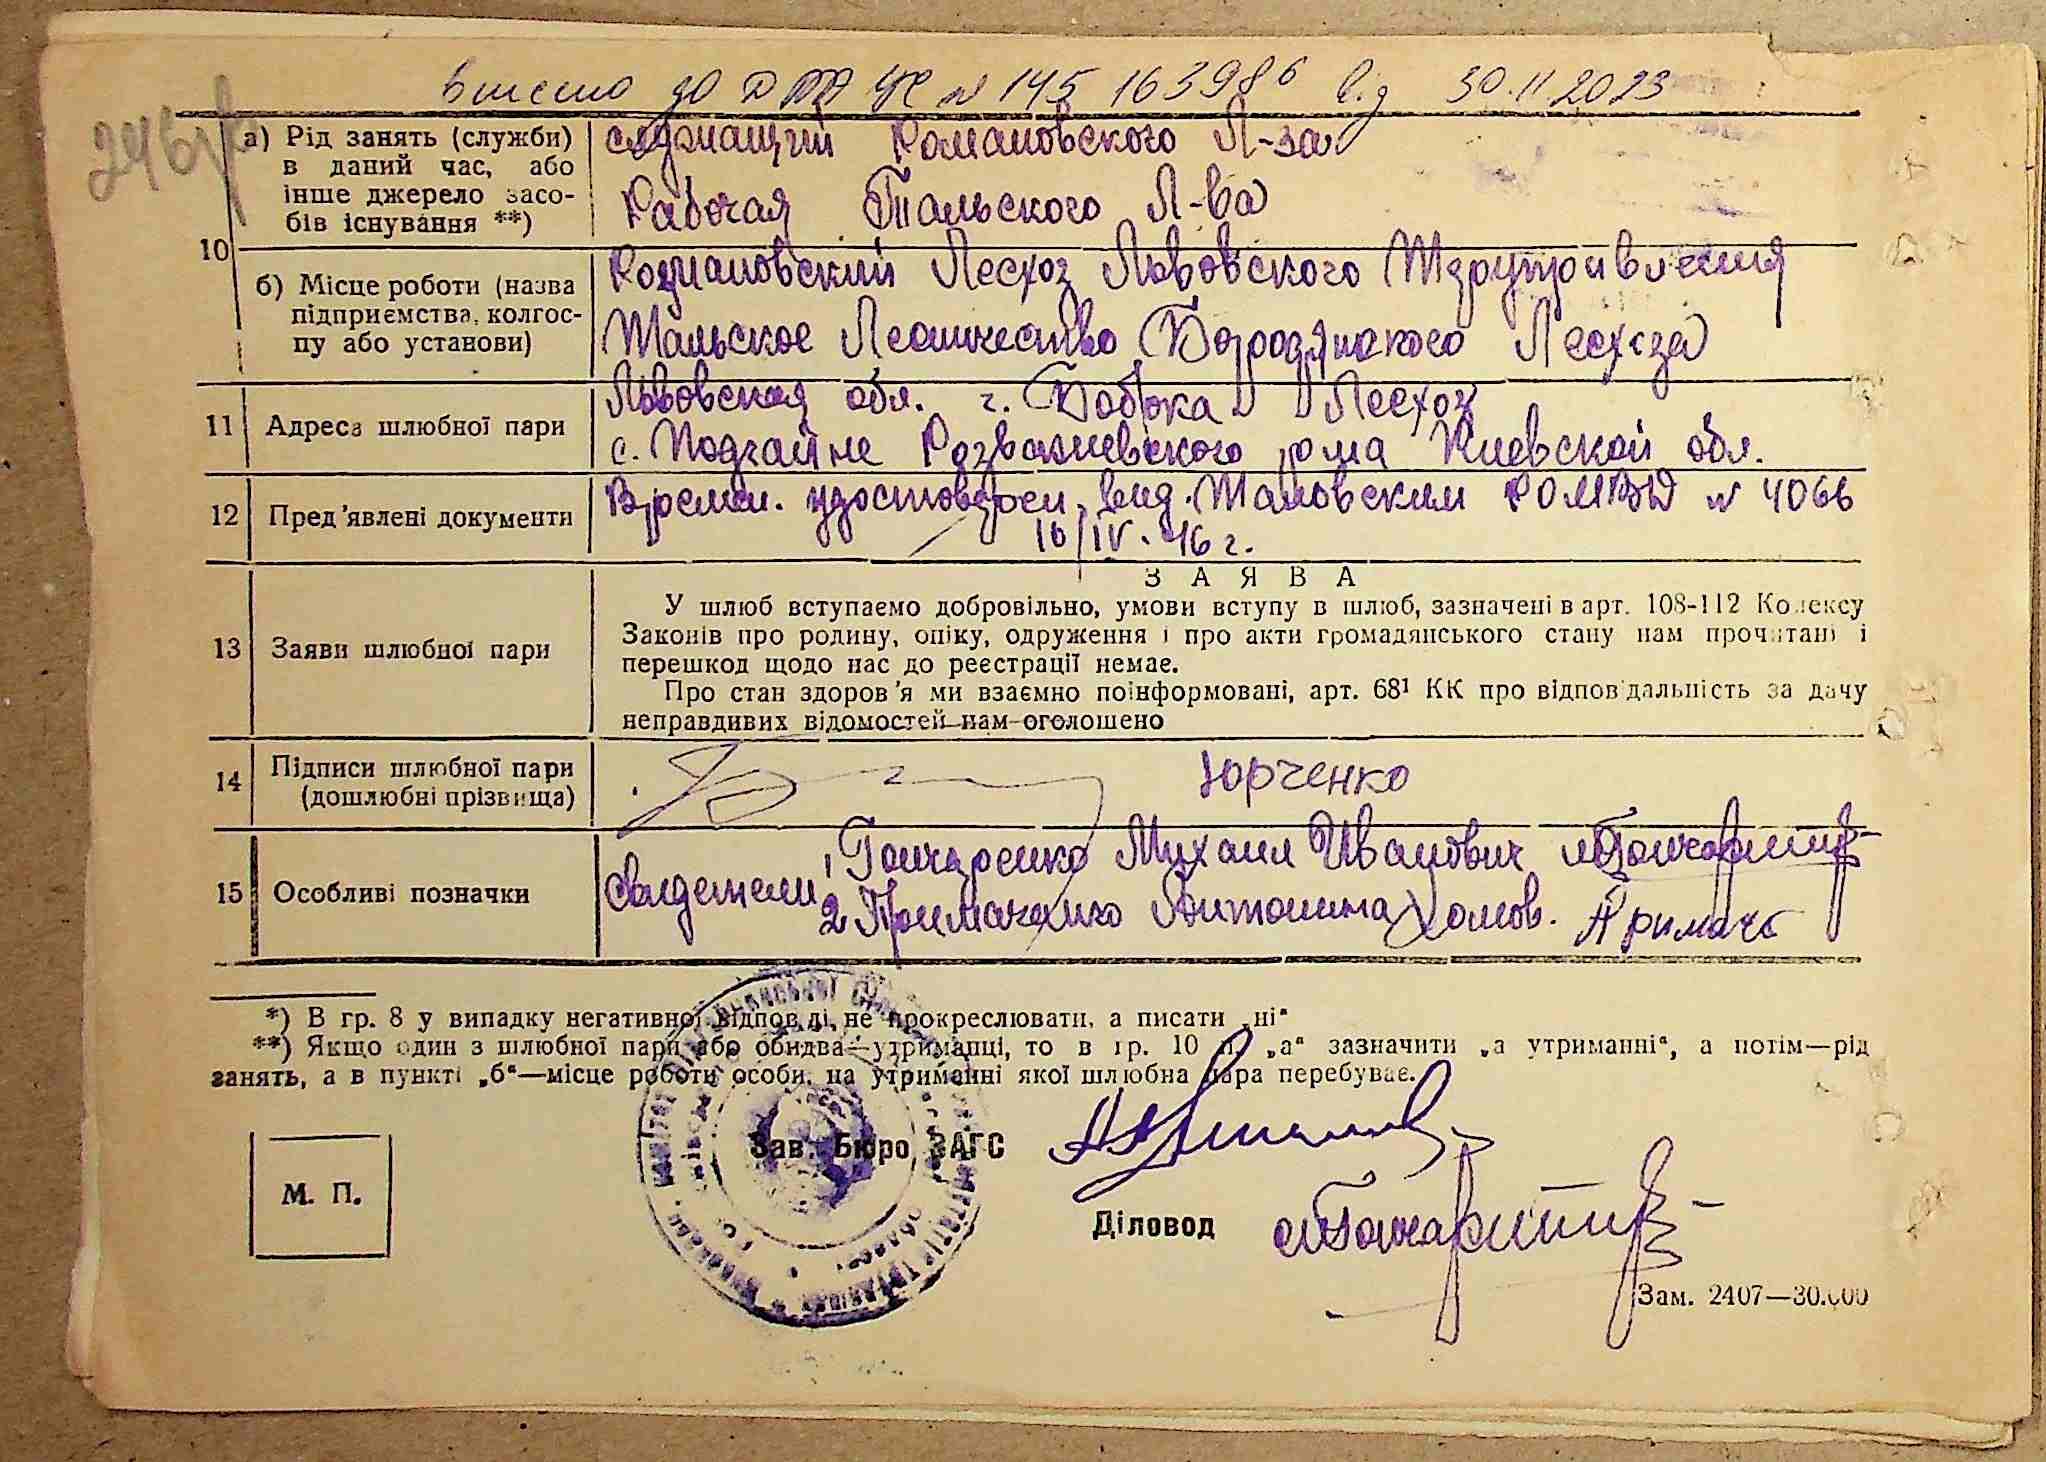 Внесено до ДРАЦС N 145 163986 від 30.11 2023
246
10
а) Рід занять (служби) в даний час, або інше джерело засобів існування **)
служащий Романовского Л-за
Рабочая Тальского Л-ва
б) Місце роботи (назва підприємства, колгоспу або установи)
Романовский Лесхоз Львовского Тэруправления
Тальское Лесничество Бородянского Лесхоза
11 Адреса шлюбної пари
Львовская обл. г. Бобрка Лесхоз
с. Подгайне Розважевского р-на Киевской обл.
12 Пред'явлені документи
Времен. удостоверен. выд. РОМВД N 4066
16/IV-46 г.
13 Заяви шлюбної пари
ЗАЯВА
У шлюб вступаємо добровільно, умови вступу в шлюб, зазначені в арт. 108-112 Кодексу
Законів про родину, опіку, одруження і про акти громадянського стану нам прочитані і
перешкод щодо нас до реєстрації немає.
Про стан здоров'я ми взаємно поінформовані, арт. 68¹ КК про відповідальність за дачу
неправдивих відомостей нам оголошено
14 Підписи шлюбної пари
(дошлюбні прізвища)
Юрченко
15 Особливі позначки
Свидетели 1 Гончаренко Михаил Иванович
2 Примаченко Антонина Хомов. Примаче
*) В гр. 8 у випадку негативної відповіді, не прокреслювати, а писати „ні“
**) Якщо один з шлюбної пари або обидва—утриманці, то в гр. 10 п. „а“ зазначити „а утриманні“, а потім—рід
занять, а в пункті „б“—місце роботи особи, на утриманні якої шлюбна пара перебуває.
Зав. Бюро ЗАГС
М. П.
Діловод
Зам. 2407—30.000